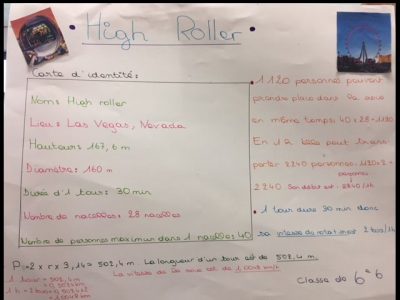 High Roller
Carte d'identité:
Nom: High roller
Lieu: Las Vegas, Nevada
Hauteur: 167,6 m
Diamètre: 160 m
Durée d'1 tour: 30 min
Nombre de nacelles: 28 nacelles
Nombre de personnes maximum dans 1 nacelle: 40
1120 personnes peuvent
prendre place dans la roue
en même temps: 40 x 28 = 1120
En 1 h elle peut trans
porter 2240 personnes: 1120 x 2 =
personnes
2240 Son débit est: 2240/1h
1 tour dure 30 min donc
sa vitesse de rotation: 2 tours/1h
P = 2 x r x 3,14 = 502,4 m La longueur d'un tour est de 502,4 m.
1 tour = 502,4 m
= 0,5024 km
1 h = 2 tours = 0,5024 x 2
= 1,0048 km
La vitesse de la roue est de 1,0048 km/h
Classe de 6e 6